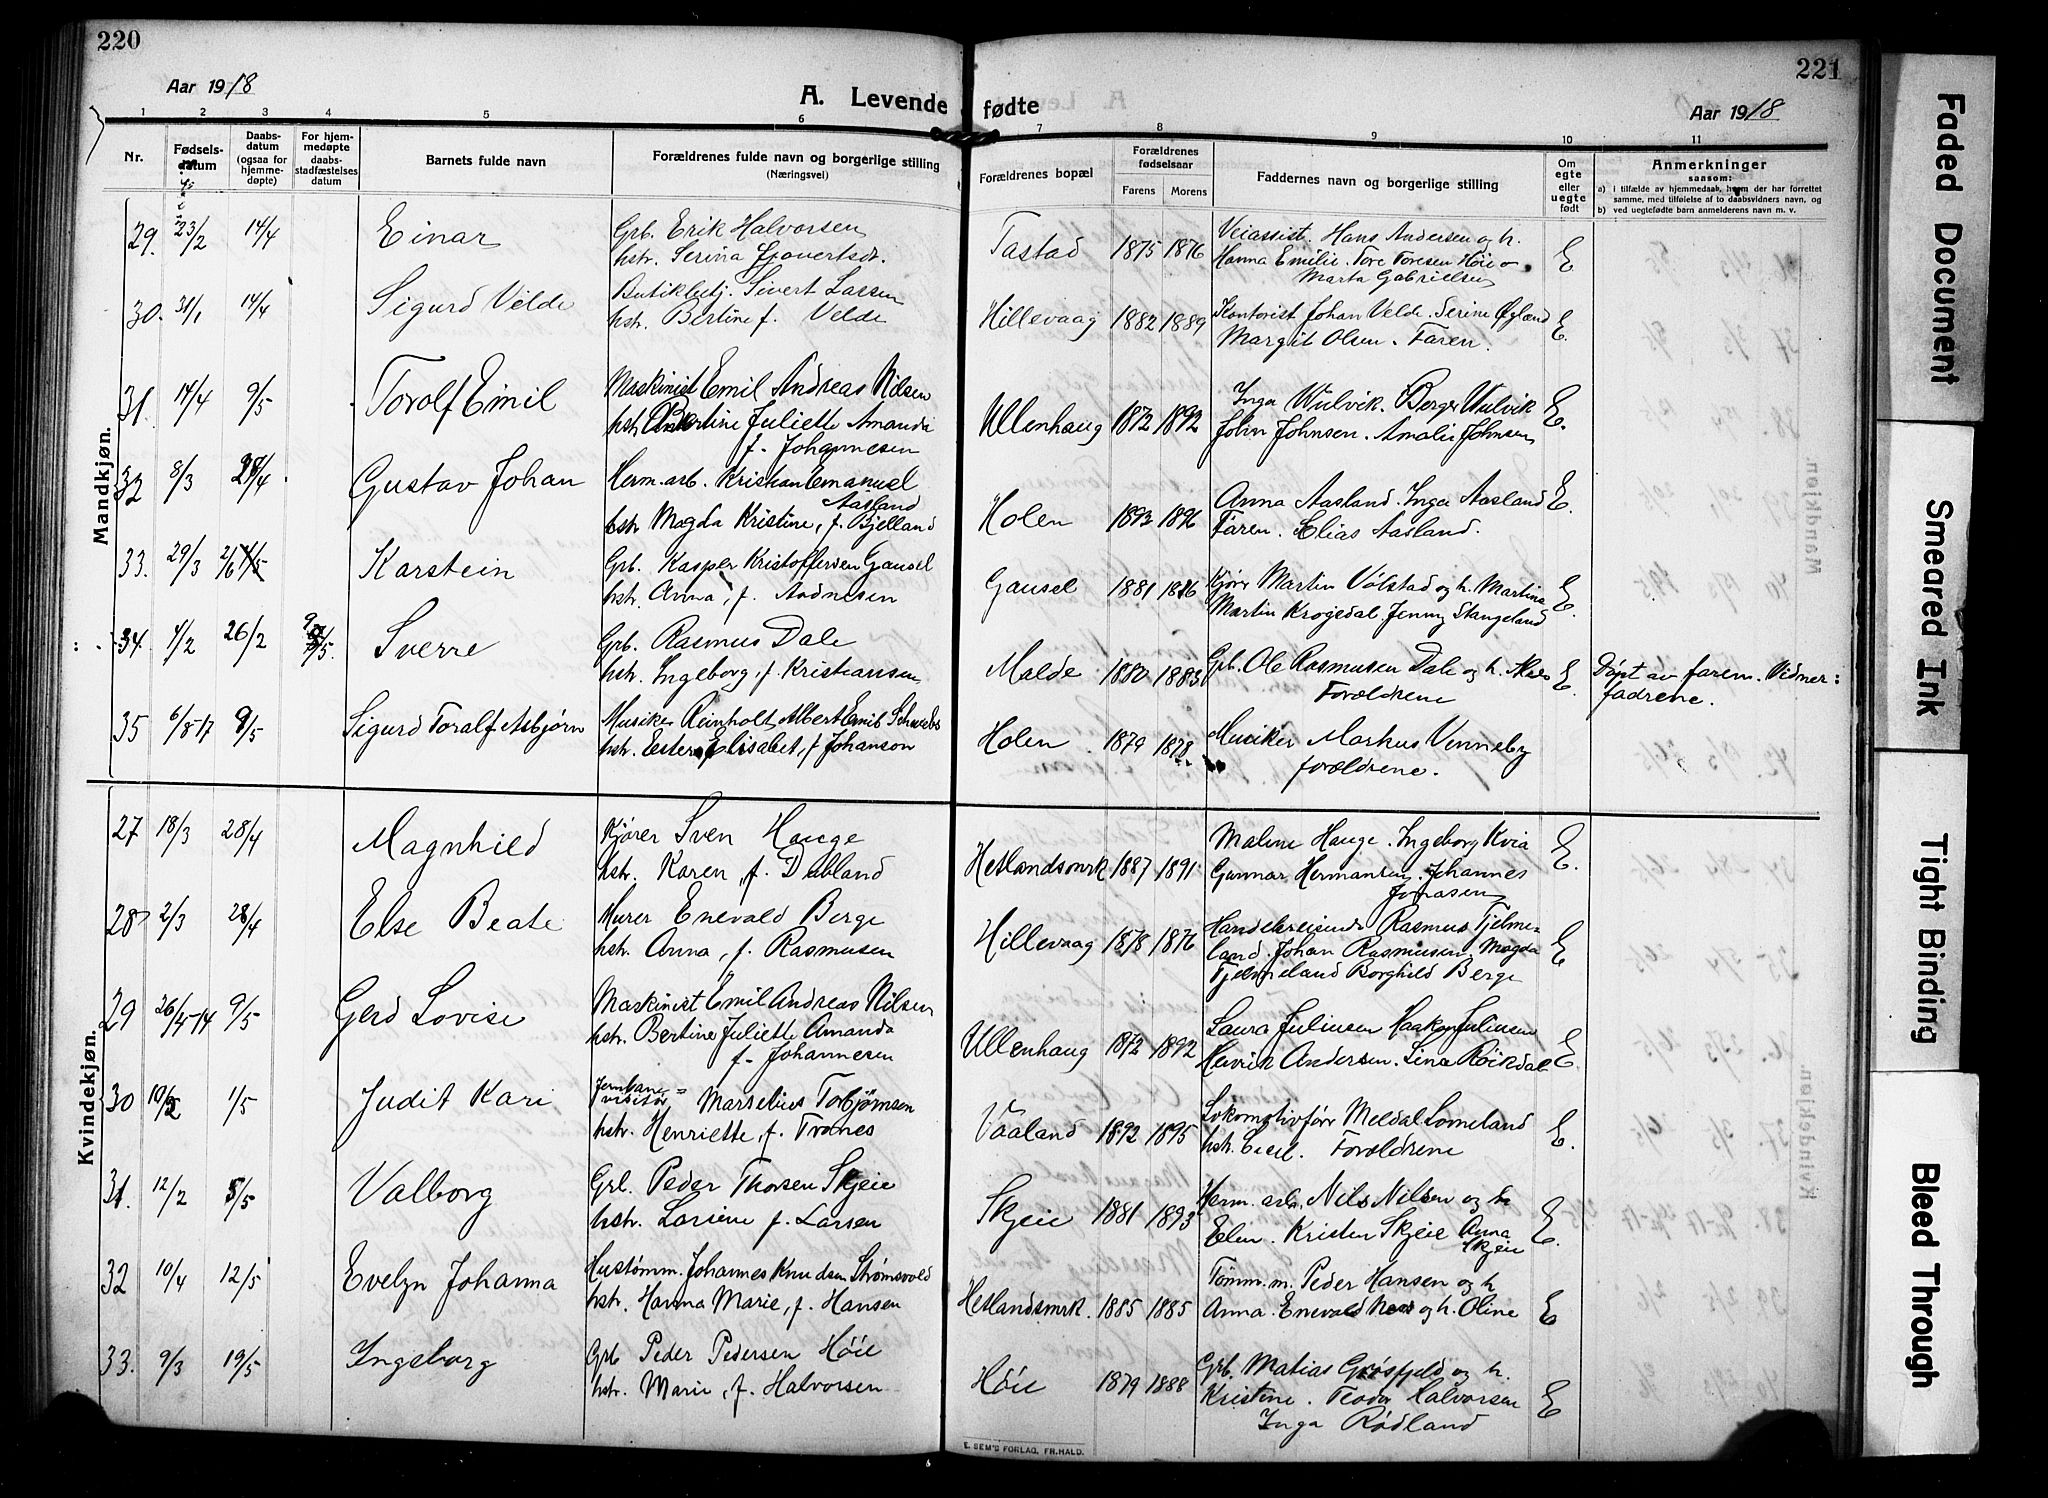 220
221
Aar 1918
A. Levende fødte
Aar 1918
1 2 3 4 5 6 7 8 9 10 11
Nr.
Fødsels-
datum
Daabs-
datum
(ogsaa for
hjemme-
døpte)
For hjem-
medøpte
daabs-
stadfæstelses
datum
Barnets fulde navn
Forældrenes fulde navn og borgerlige stilling
(Næringsvei)
Forældrenes bopæl
Forældrenes
fødselsaar
Farens Morens
Faddernes navn og borgerlige stilling
Om
egte
eller
uegte
født
Anmerkninger
sansom:
a) i tilfælde av hjemmedaab, hvem der har forrettet
samme, med tilføielse af to daabsvidners navn, og
b) ved uegtefødte barn anmelderens navn m. v.
Mandkjøn.
29. 23/2 14/4 Einar Grb. Erik Halvorsen
hstr. Serina Govertsdr. Tastad 1875 1876 Veiassist. Hans Andersen og h.
Hanna Emilie. Tore Toresen Høie
Marta Gabrielsen E
30. 31/1 14/4 Sigurd Velde Butikbetj. Sivert Lassen
hstr. Bertine f. Velde Hillevaag 1882 1889 Kontorist Johan Velde. Serine Øgland
Margit Olsen. Faren. E.
31. 14/4 9/5 Torolf Emil Maskinist Emil Andreas Nilsen
hstr. Bertine Juliette Amanda
f. Johannesen Ullenhaug 1872 1892 Inga Wulvik. Berger Wulvik
John Johnsen. Amalie Johnsen E.
32 8/3 28/4 Gustav Johan Herm. arb. Kristian Emanuel
Aasland
hstr. Magda Kristine, f. Bjelland Holen 1893 1896 Anna Aasland. Inga Aasland
Faren. Elias Aasland. E.
33. 29/3 2/6 Karstein Grb. Kasper Kristoffersen Gausel
hstr. Anna, f. Aadnesen Gausel 1881 1886 Kjører Martin Volstad og h. Martina
Martin Krogedal Jenny Stangeland E.
34. 1/2 26/2 9/5. Sverre Grb. Rasmus Dale
hstr. Ingeborg, f. Kristiansen Malde 1880 1883 Grb. Ole Rasmusen Dale og h.
Forældrene E. Døpt av faren. Vidner:
fadrene.
35 6/8-17 9/5 Sigurd Toralf Asbjørn Musiker Reinholt Albert Emil
hstr. Ester Elisabet, f. Johanson Holen 1879 1878 Musiker Markus Venneby
forældrene.
Kvindekjøn.
27 18/3 28/4 Magnhild Kjører Sven Hauge
hstr. Karen, f. Dubland Hetlandsmrk 1887 1891 Malene Hauge. Ingeborg Kvia
Gunnar Hermansen. Johannes
Jonasen E.
28 2/3 28/4 Else Beate Murer Enevald Berge
hstr. Anna, f. Rasmusen Hillevaag 1878 1876 Handelsreisende Rasmus Tjelme-
land. Johan Rasmusen. Magda
Tjelmeland Borghild Berge E
29 26/4-14 9/5 Gerd Lovise Maskinist Emil Andreas Nilsen
hstr. Bertine Juliette Amanda
f. Johannesen Ullenhaug 1872 1892 Laura Juliusen Haakon Juliusen
Henrik Andersen. Lina Roikdal E.
30 10/2 1/5 Judit Kari Jernbane-
visitør Marselius Torbjørnsen
hstr. Henriette, f. Tranes Vaaland 1892 1895 Lokomotivfører Meldal Lomeland
hstr. Cecil. Forældrene E.
31. 12/2 5/5 Valborg Grb. Peder Thorsen Skjeie
hstr. Lorsine f. Larsen Skjeie 1881 1893 Herm. arb. Nils Nilsen og h
Elin. Kristen Skjeie Anna
Skjeie E.
32 10/4 12/5 Evelyn Johanna Hustømm. Johannes Knudsen Strømsvold
hstr. Hanna Marie, f. Hansen Hetlandsmrk. 1885 1885 Tømm. m. Peder Hansen og h
Anna. Enevald Næs og h. Oline E
33. 9/3 19/5 Ingeborg Grb. Peder Pedersen Høie
hstr. Marie, f. Halvorsen Høie 1879 1888 Grb. Matias Grøsfjeld og h.
Kristine. Teodor Halvorsen
Inga Rødland E
E. SEM'S FORLAG, FR.HALD.
Faded Document
Smeared Ink
Tight Binding
Bleed Through